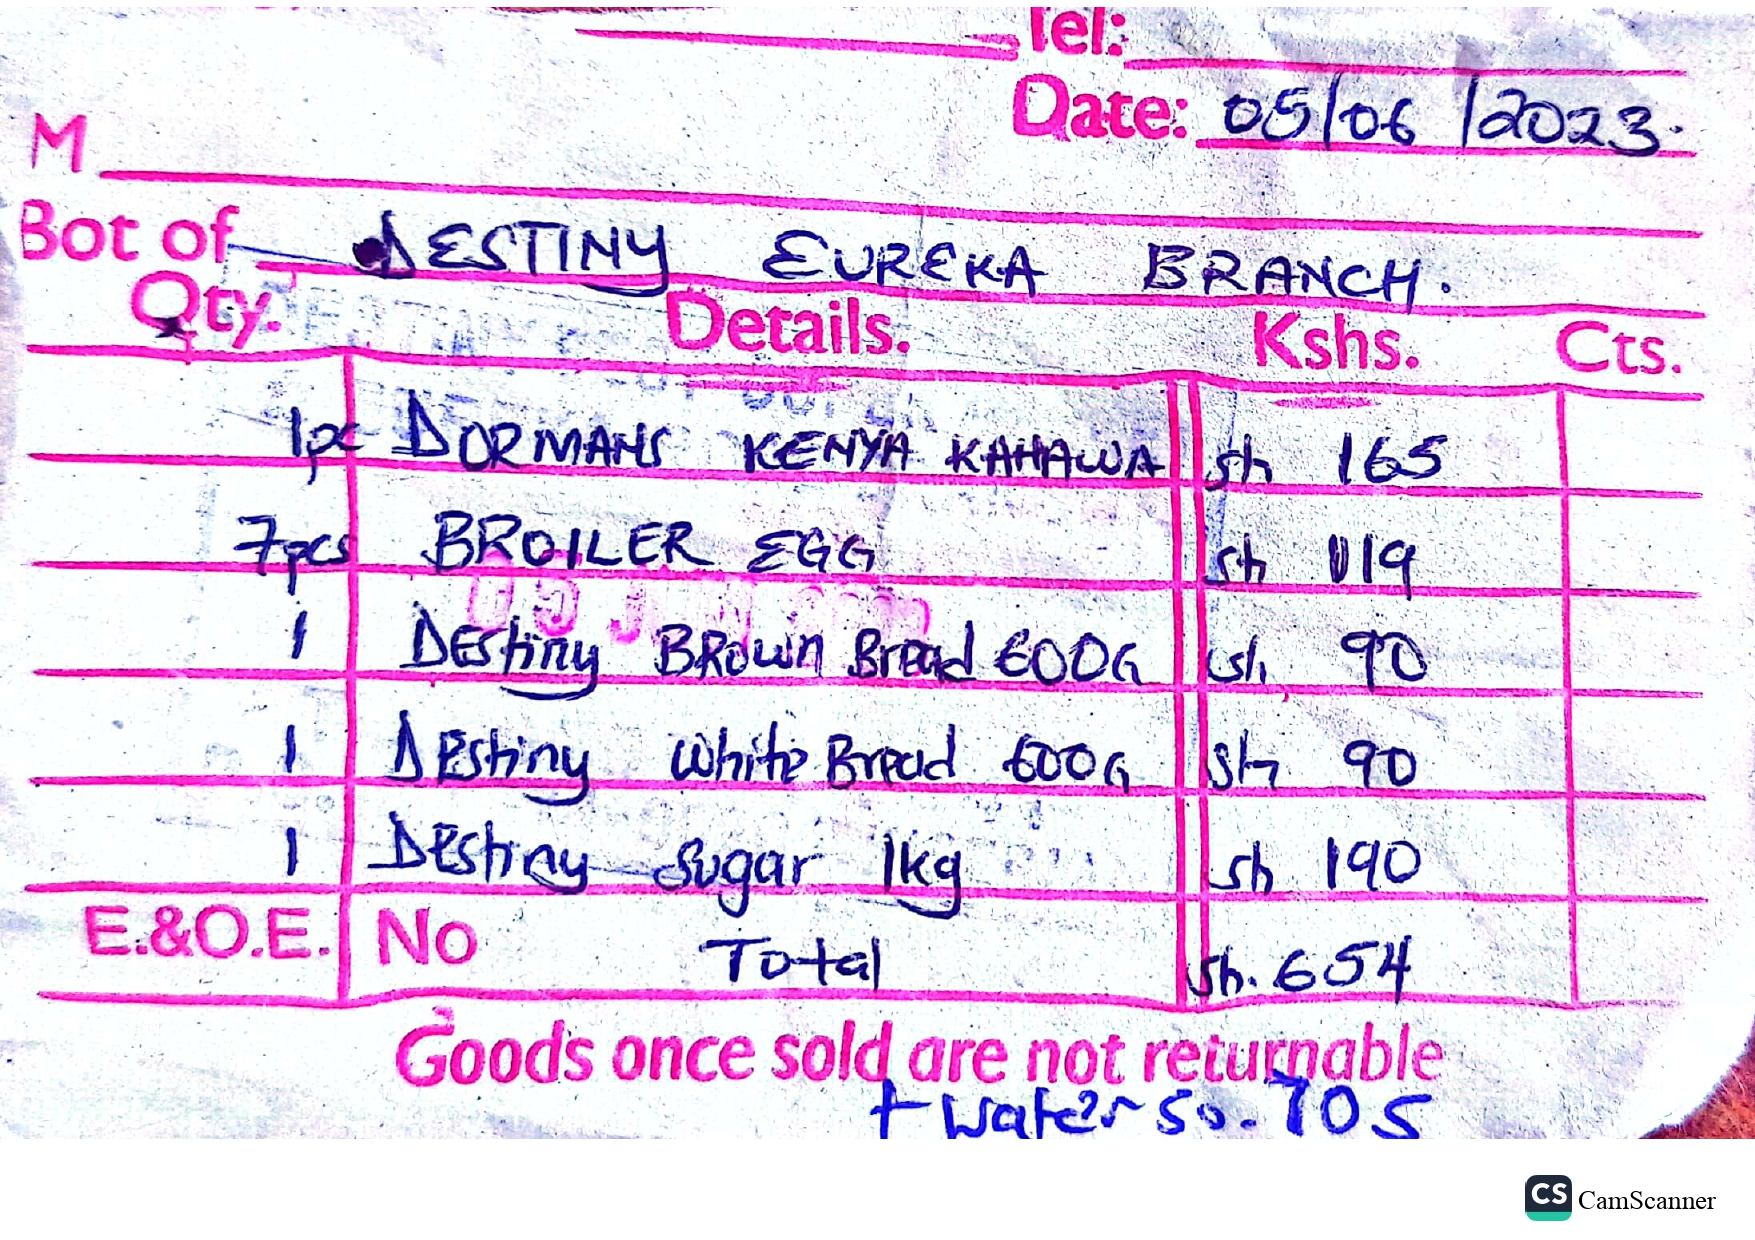 Tel:
Date: 05/06/2023.
M
Bot of DESTINY EUREKA BRANCH.
Qty. Details. Kshs. Cts.
1pc DORMANS KENYA KAHAWA sh 165
7pcs BROILER EGG sh 119
1 DEstiny BROwn Bread 600G sh 90
1 DEstiny white Bread 600G sh 90
1 DEstiny sugar 1kg sh 190
E.&O.E. No Total sh. 654
Goods once sold are not returnable
+ water 50. 705
CS CamScanner